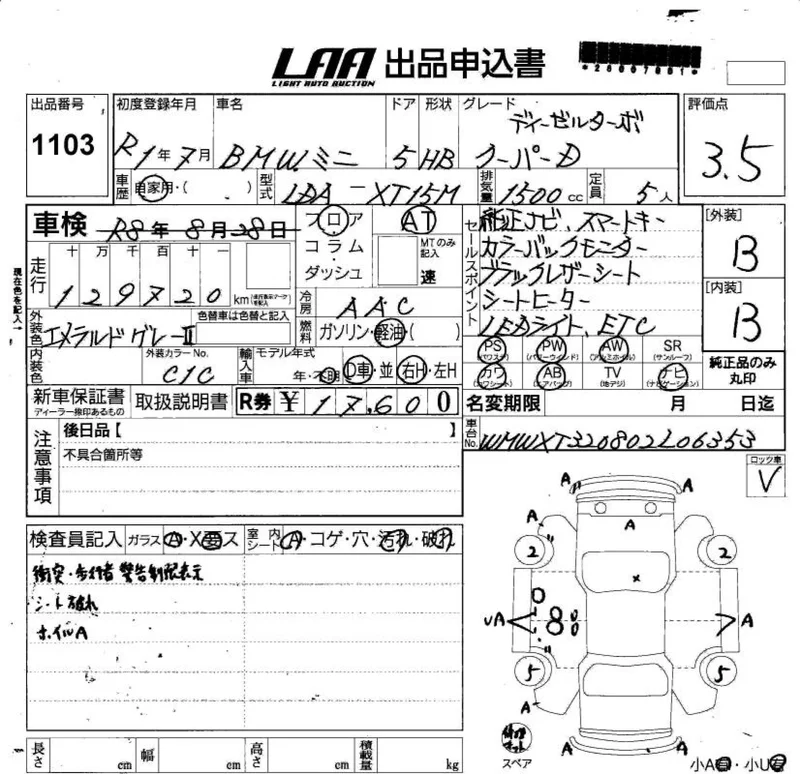 LAA 出品申込書
LIGHT AUTO AUCTION
出品番号
1103
初度登録年月
R1年7月
車名
BMWミニ
ドア
5
形状
HB
グレード
ディーゼルターボ
クーパーD
評価点
3.5
車歴
自家用・( )
型式
LDA-XT15M
排気量
1500cc
定員
5人
車検
R8年8月28日
フロア
コラム・
ダッシュ
AT
MTのみ記入
速
セールスポイント
純正ナビ、スマートキー
カラーバックモニター
ブラックレザーシート
シートヒーター
LEDライト、ETC
[外装]
B
[内装]
B
純正品のみ
丸印
現在色を記入→
走行
十 万 千 百 十 一
129720km
冷房
AAC
燃料
ガソリン・軽油・( )
外装色
エメラルドグレーII
色替車は色替と記入
内装色
外装カラーNo.
C1C
輸入車
モデル年式
年・
D車・並
右H・左H
PS (パワステ)
PW (パワーウインド)
AW (アルミホイル)
SR (サンルーフ)
カワ (カワシート)
AB (エアバッグ)
TV (地デジ)
ナビ (ナビゲーション)
新車保証書
ディーラー捺印あるもの
取扱説明書
R券 ¥17,600
名変期限 月 日迄
車台No.
WMWXT320802L06353
注意事項
後日品【 】
不具合箇所等
検査員記入
ガラス
A・X要ス
室内シート
A・コゲ・穴・汚れ・破れ
衝突・歩行者 警告制限表示
シート破れ
ホイルA
ロック車
V
A A
A
A A
2 2
x
vA 8 A
5 5
A
A A
スペア
小A有・小U有
長さ cm
幅 cm
高さ cm
積載量 kg